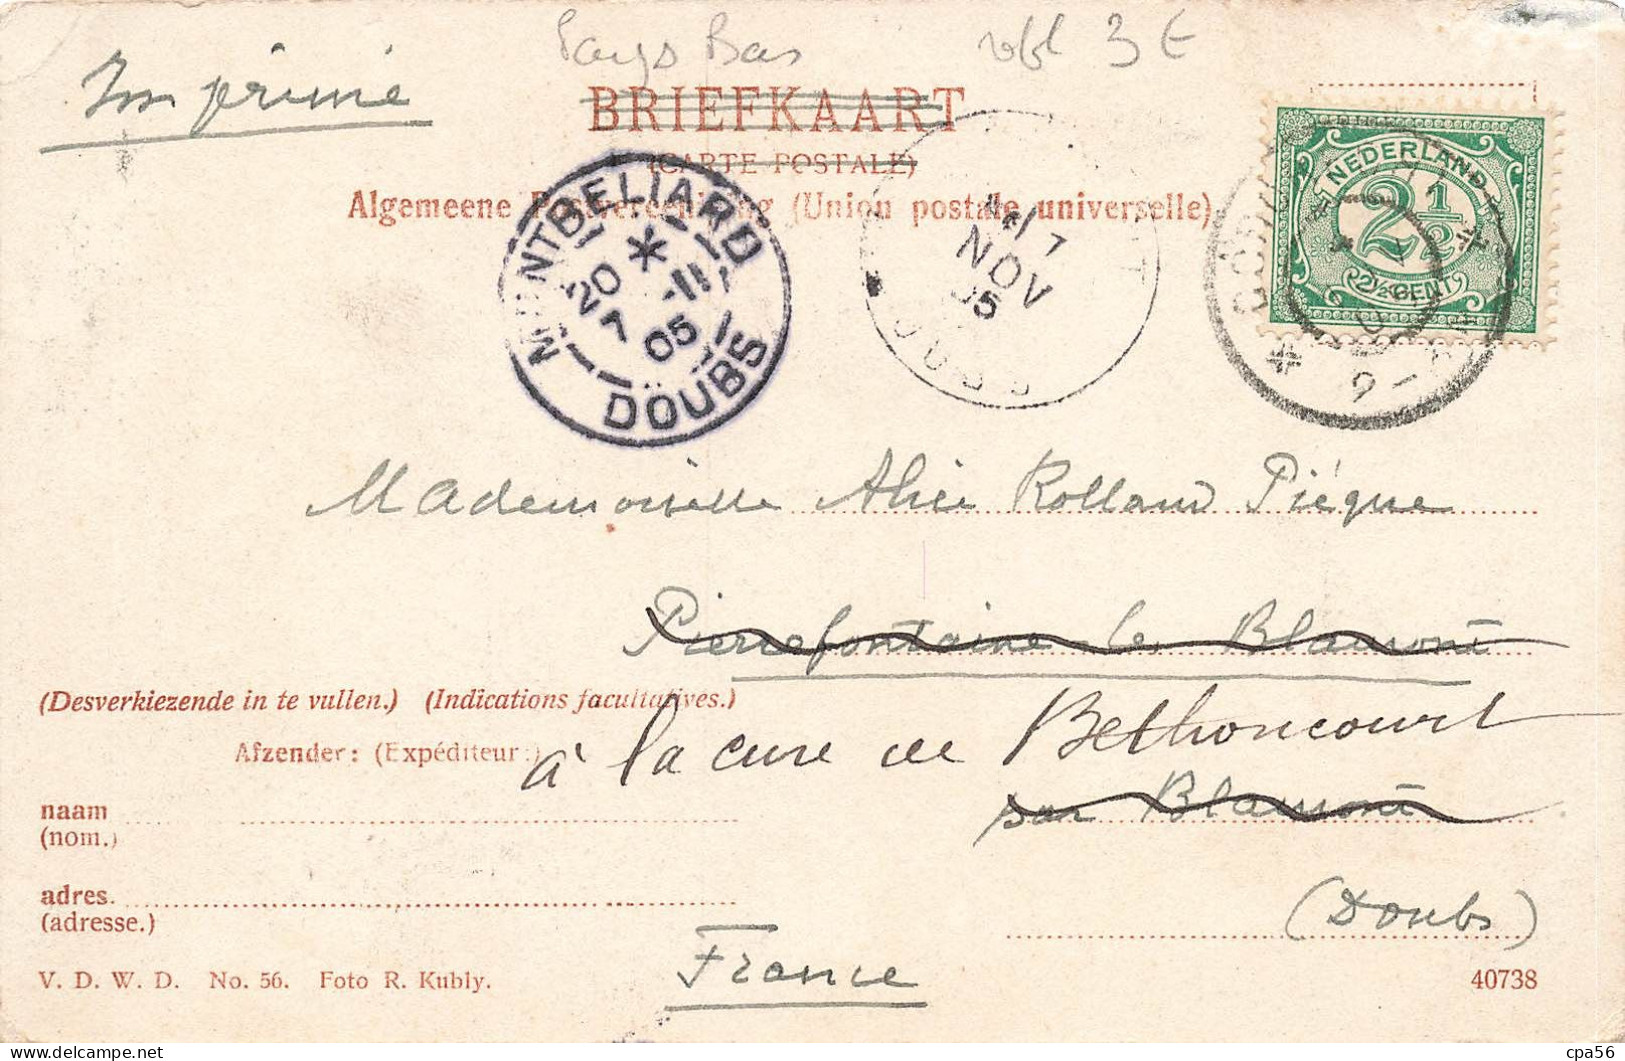 Pays Bas
3 €
Imprimé
BRIEFKAART
(CARTE POSTALE)
Algemeene Postvereeniging (Union postale universelle)
NEDERLAND
2½
2½ CENT
MONTBELIARD
20 *
7 -11
05
DOUBS
7
NOV
05
DOUBS
Mademoiselle Alice Rolland Piègue
Pierrefontaine les Blamont
(Desverkiezende in te vullen.) (Indications facultatives.)
à la cure de Bethoncourt
Afzender: (Expéditeur:)
par Blamont
naam
(nom.)
adres.
(adresse.)
(Doubs)
France
V. D. W. D. No. 56. Foto R. Kubly.
40738
cpa56